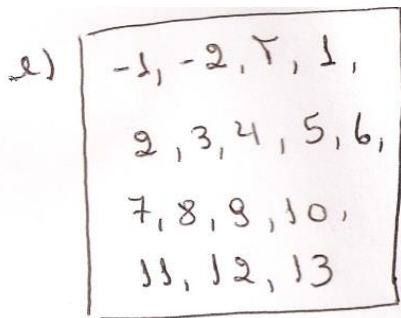 e) -1, -2, r, 1,
2, 3, 4, 5, 6,
7, 8, 9, 10,
11, 12, 13